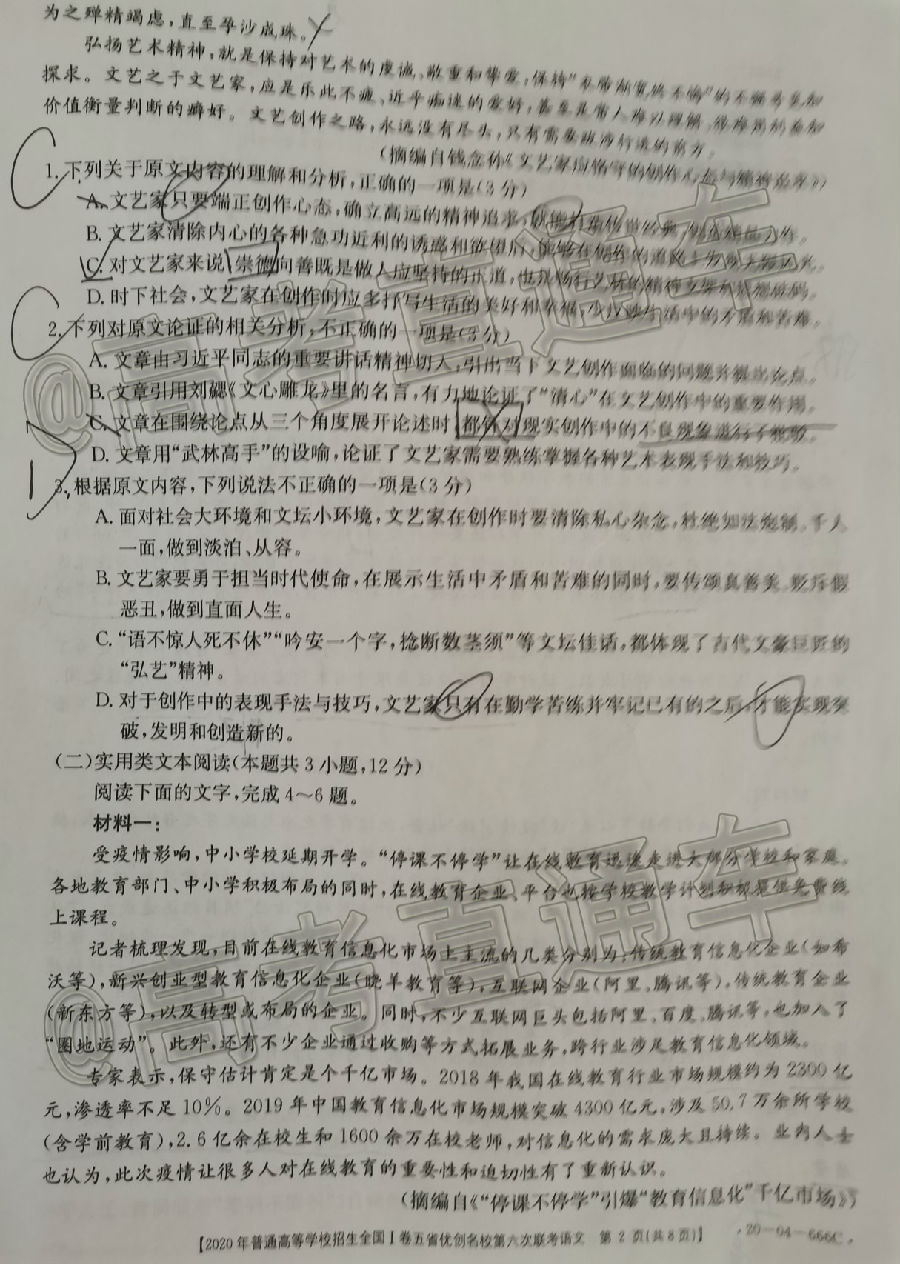 为之殚精竭虑，直至孕沙成珠。
弘扬艺术精神，就是保持对艺术的虔诚、敬重和挚爱，保持
探求。文艺之于文艺家，应是乐此不疲、近乎痴迷的爱好，甚至是常人难以理解、
价值衡量判断的癖好。文艺创作之路，永远没有尽头，只有需要跋涉行进的前方。
(摘编自钱念孙《文艺家应恪守的创作心态与精神追求》)
1.下列关于原文内容的理解和分析，正确的一项是(3分)
A.文艺家只要端正创作心态，确立高远的精神追求，
B.文艺家清除内心的各种急功近利的诱惑和欲望后，
C.对文艺家来说，崇德向善既是做人应坚持的正道，也
D.时下社会，文艺家在创作时应多抒写生活的美好和幸福，少
2.下列对原文论证的相关分析，不正确的一项是(3分)
A.文章由习近平同志的重要讲话精神切入，引出当下文艺创作面临的问题并提出论点。
B.文章引用刘勰《文心雕龙》里的名言，有力地论证了“清心”在文艺创作中的重要作用。
C.文章在围绕论点从三个角度展开论述时，都针对现实创作中的不良现象进行了批驳。
D.文章用“武林高手”的设喻，论证了文艺家需要熟练掌握各种艺术表现手法和技巧。
3.根据原文内容，下列说法不正确的一项是(3分)
A.面对社会大环境和文坛小环境，文艺家在创作时要清除私心杂念，杜绝如法炮制、千人
一面，做到淡泊、从容。
B.文艺家要勇于担当时代使命，在展示生活中矛盾和苦难的同时，要传颂真善美、贬斥假
恶丑，做到直面人生。
C.“语不惊人死不休”“吟安一个字，捻断数茎须”等文坛佳话，都体现了古代文豪巨匠的
“弘艺”精神。
D.对于创作中的表现手法与技巧，文艺家只有在勤学苦练并牢记已有的之后，才能实现突
破，发明和创造新的。
(二)实用类文本阅读(本题共3小题，12分)
阅读下面的文字，完成4～6题。
材料一：
受疫情影响，中小学校延期开学。“停课不停学”让在线教育迅速走进大部分学校和家庭。
各地教育部门、中小学积极布局的同时，在线教育企业、平台也按学校教学计划积极提供免费线
上课程。
记者梳理发现，目前在线教育信息化市场上主流的几类分别为：传统教育信息化企业(如希
沃等)，新兴创业型教育信息化企业(晓羊教育等)，互联网企业(阿里、腾讯等)，传统教育企业
(新东方等)，以及转型或布局的企业。同时，不少互联网巨头包括阿里、百度、腾讯等，也加入了
“圈地运动”。此外，还有不少企业通过收购等方式拓展业务，跨行业涉足教育信息化领域。
专家表示，保守估计肯定是个千亿市场。2018年我国在线教育行业市场规模约为2300亿
元，渗透率不足10%。2019年中国教育信息化市场规模突破4300亿元，涉及50.7万余所学校
(含学前教育)，2.6亿余在校生和1600余万在校老师，对信息化的需求庞大且持续。业内人士
也认为，此次疫情让很多人对在线教育的重要性和迫切性有了重新认识。
(摘编自《“停课不停学”引爆“教育信息化”千亿市场》)
【2020年普通高等学校招生全国Ⅰ卷五省优创名校第六次联考语文 第2页(共8页)】 ·20-04-666C·
C
C
D
@高考直通车
@高考直通车